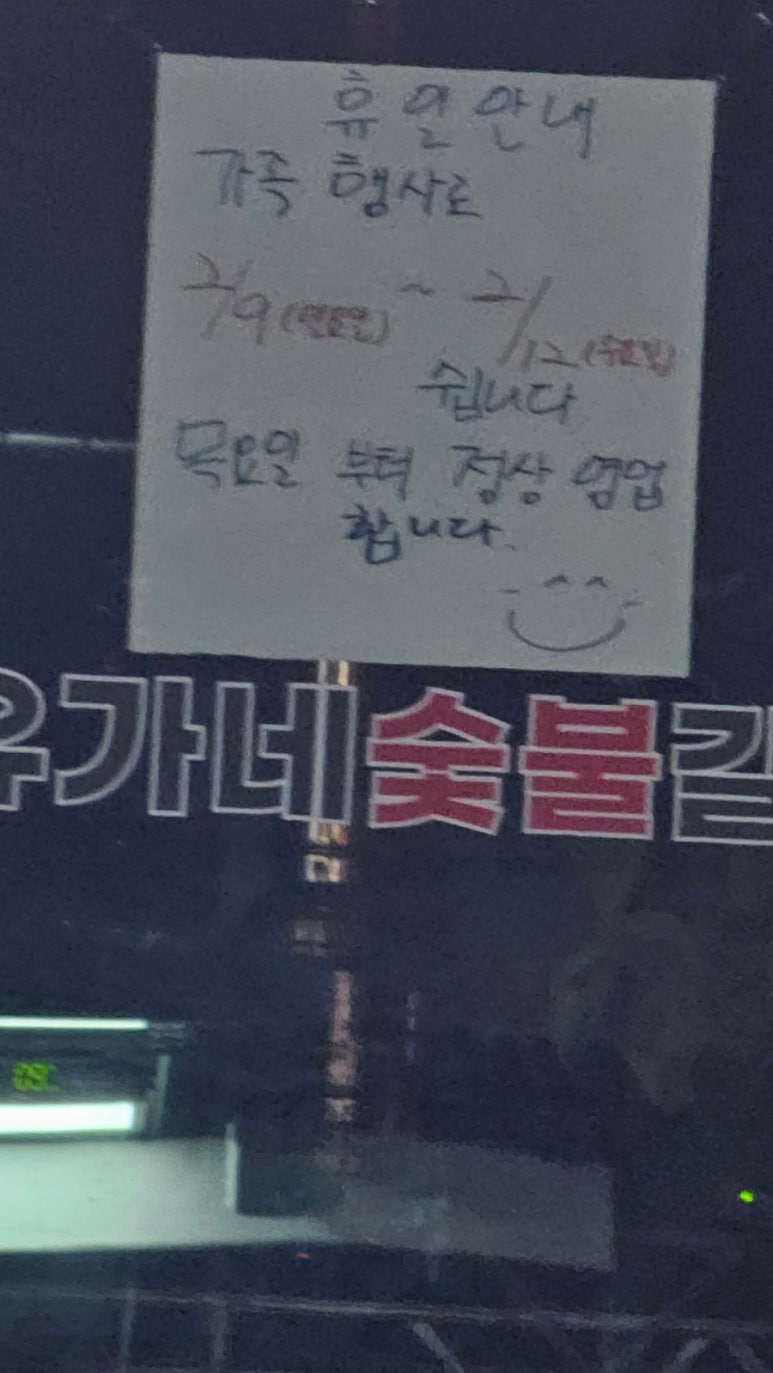 휴일안내
가족 행사로
2/9(일요일) ~ 2/12(수요일)
쉽니다
목요일 부터 정상 영업
합니다.
유가네숯불갈